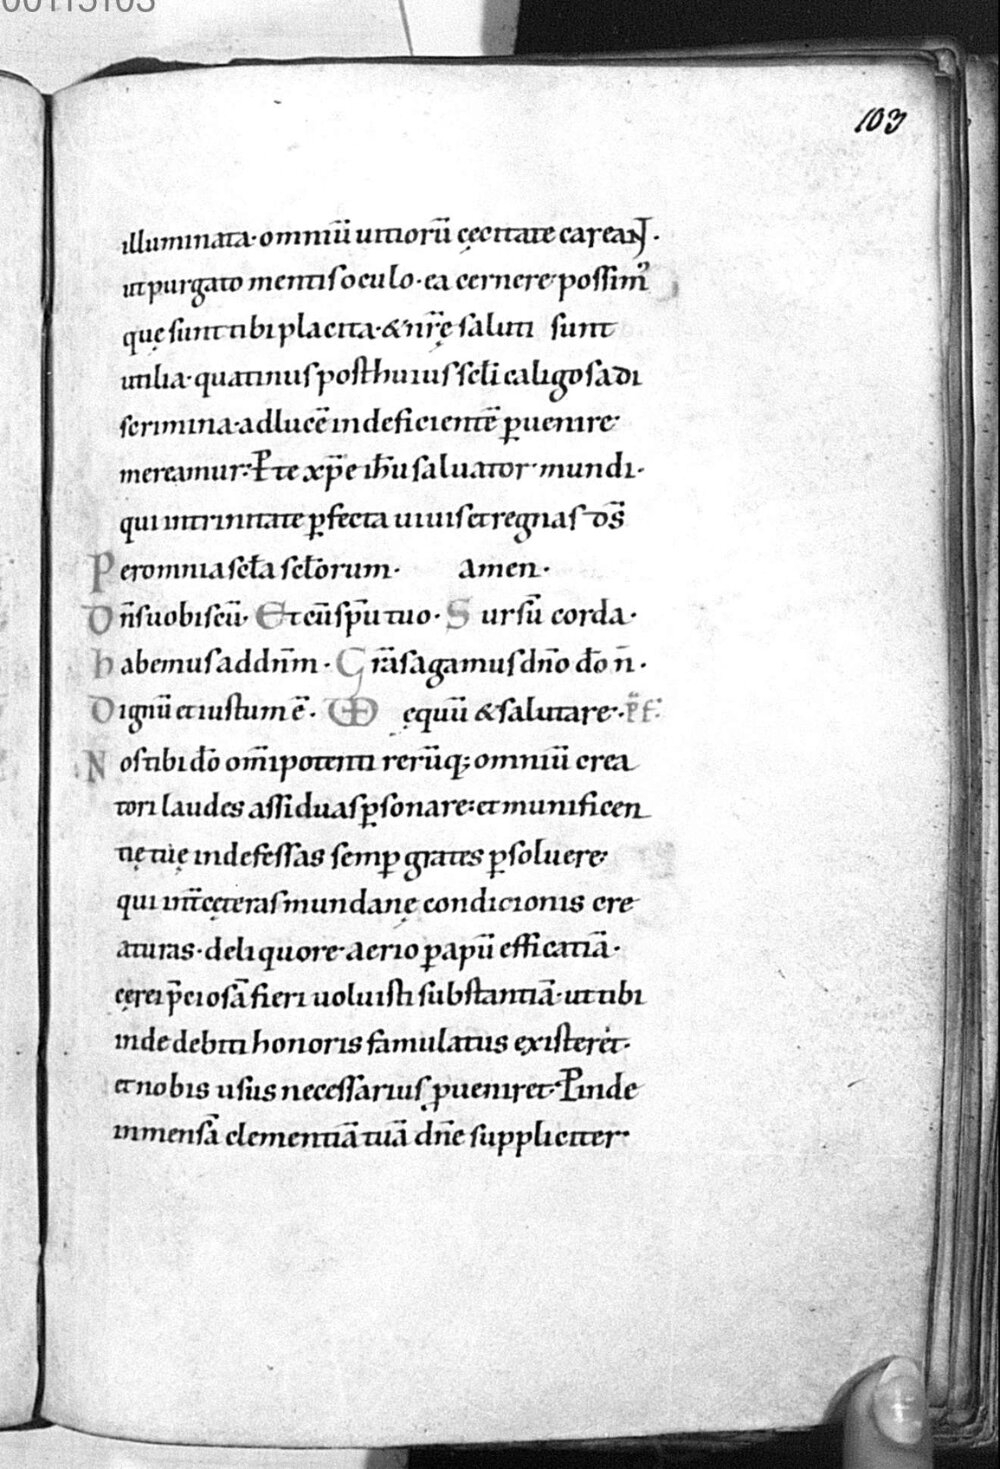 00115103
103
illuminata· omniū uitiorū cęcitate careant·
ut purgato mentis oculo· ea cernere possimꝰ
quę sunt tibi placita· & nr̄ę saluti sunt
utilia· quatinus post huius scl̄i caligosa di
scrimina· ad lucē indeficientē ꝑuenire
mereamur· P te xp̄e ih̄u saluator mundi·
qui in trinitate ꝑfecta uiuis et regnas ds̄
Per omnia scl̄a scl̄orum· amen·
Dn̄s uobiscū· Et cū sp̄u tuo· Sursū corda·
habemus ad dn̄m· Grās agamus dn̄o dō n̄·
Dignū et iustum ē· VD ęquū & salutare· p̄f·
Nos tibi dō om̄ipotenti rerūq; omniū crea
tori laudes assiduas ꝑsonare· et munificen
tię tuę indefessas semꝑ grates ꝑsoluere·
qui int̄ cęteras mundanę condicionis cre
aturas· de liquore aerio ꝑ apū efficatiā·
cęrei p̄ciosā fieri uoluisti substantiā· ut tibi
inde debiti honoris famulatus existeret·
et nobis usus necessarius ꝓueniret· Pinde
inmensā clementiā tuā dn̄e suppliciter·